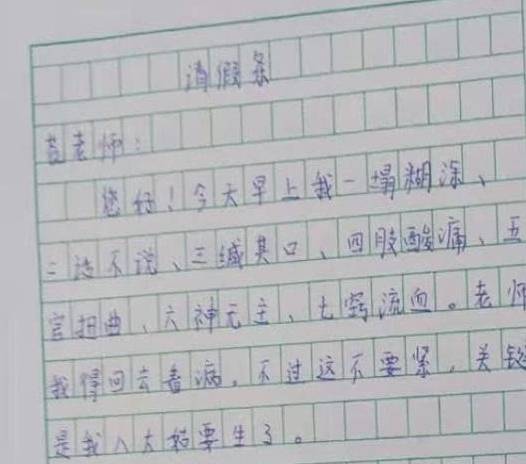 请假条
老师：
您好！今天早上我一塌糊涂、
二话不说、三缄其口、四肢酸痛、五
官扭曲、六神无主、七窍流血。老师
我得回去看病。不过这不要紧，关键
是我八大姑要生了。